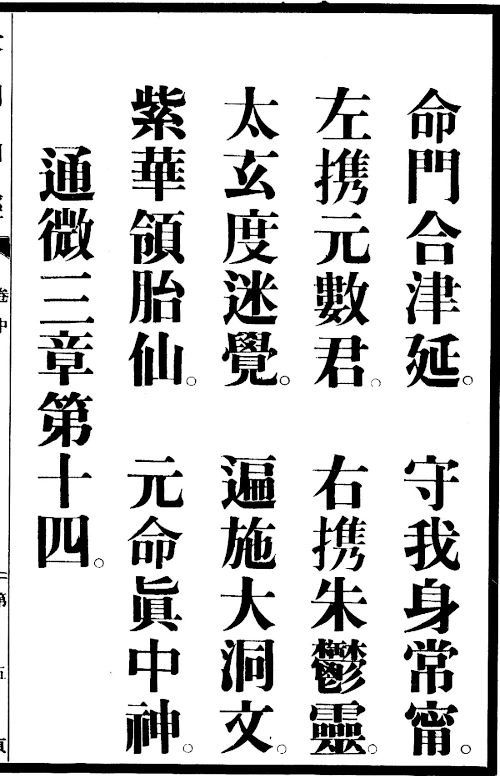 命門合津延。 守我身常甯。
左携元數君。 右携朱鬱靈。
太玄度迷覺。 遍施大洞文。
紫華領胎仙。 元命眞中神。
通微三章第十四。
卷中